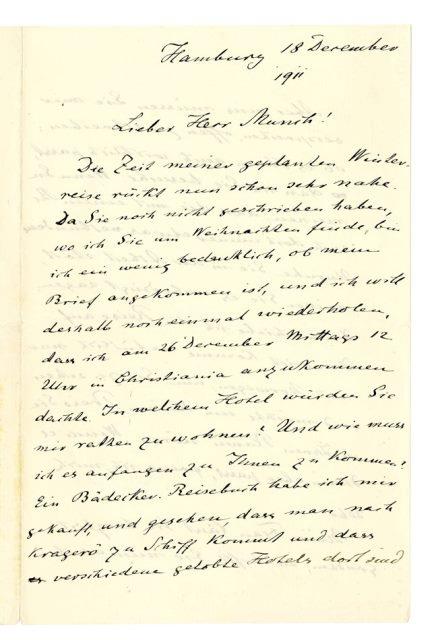 Hamburg 18 December
1911
Lieber Herr Munch!
Die Zeit meiner geplanten Winter-
reise rückt nun schon sehr nahe.
Da Sie noch nicht geschrieben haben,
wo ich Sie um Weihnachten finde, bin
ich ein wenig bedenklich, ob mein
Brief angekommen ist, und ich will
deshalb noch einmal wiederholen,
dass ich am 26 December Mittags 12
Uhr in Christiania anzukommen
dachte. In welchem Hotel würden Sie
mir raten zu wohnen? Und wie muss
ich es anfangen zu Ihnen zu kommen?
Ein Bädecker-Reisebuch habe ich mir
gekauft, und gesehen, dass man nach
Kragerö zu Schiff kommt und dass
verschiedene gelobte Hotels dort sind